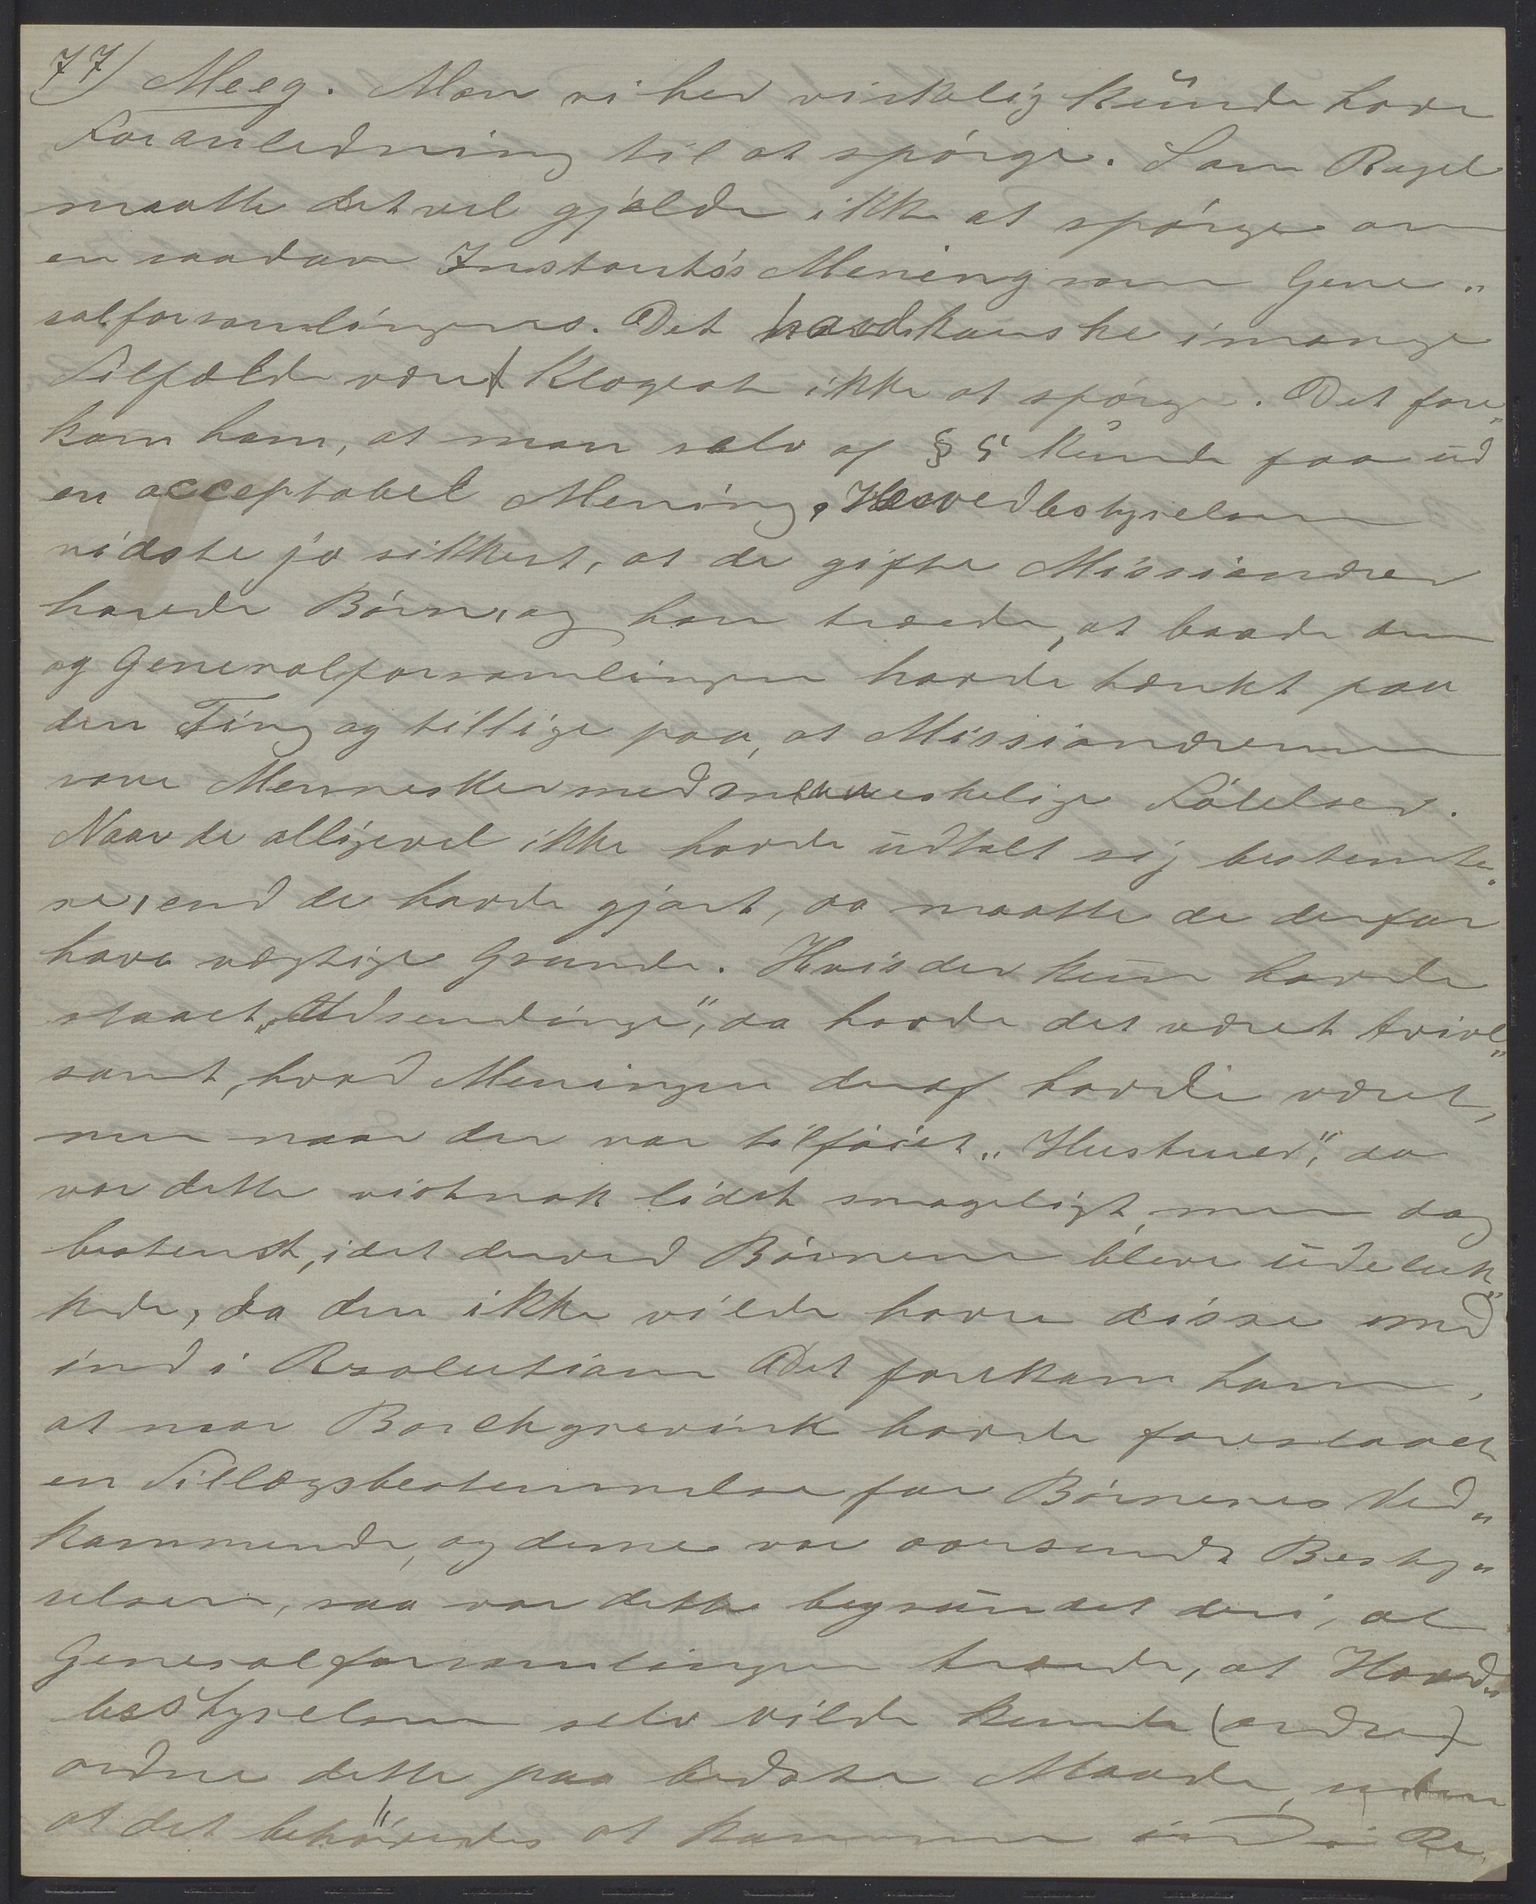 77) Meeg. Mon vi her virkelig kunde have
Foranledning til at spørge. Som Regel
maatte det vel gjælde ikke at spørge om
en saadan Instants's Mening som Gene„
ralforsamlingens. Det kanske i mange
Tilfælde være Klogest ikke at spørge. Det fore„
kom ham, at man selv af § 5 kunde faa ud
en acceptabel Mening. Hovedbestyrelsen
vidste jo sikkert, at de gifte Missionærer
havde Børn, og han troede, at baade den
og Generalforsamlingen havde tænkt paa
den Ting og tillige paa, at Missionærerne
vare Mennesker med menneskelige Følelser.
Naar de alligevel ikke havde udtalt sig bestemte„
re, end de havde gjort, saa maatte de derfor
have vægtige Grunde. Hvis der kun havde
staaet „Udsendinge", da havde det været tvivl„
somt, hvad Meningen deraf havde været,
men naar der var tilføiet „Hustruer", da
var dette vistnok lidet smageligt, men dog
bestemt, idet derved Børnene bleve udeluk„
kede, da den ikke vilde have disse med
ind i Resolutionen. Det forekom ham,
at naar Borchgrevink havde foreslaaet
en Tillægsbestemmelse for Børnenes Ved„
kommende, og denne var oversendt Besty„
relsen, saa var dette begrundet deri, at
Generalforsamlingen troede, at Hoved„
bestyrelsen selv vilde kunde (ordne)
ordne dette paa bedste Maade, uden
at det behøvedes at komme ind i Re„